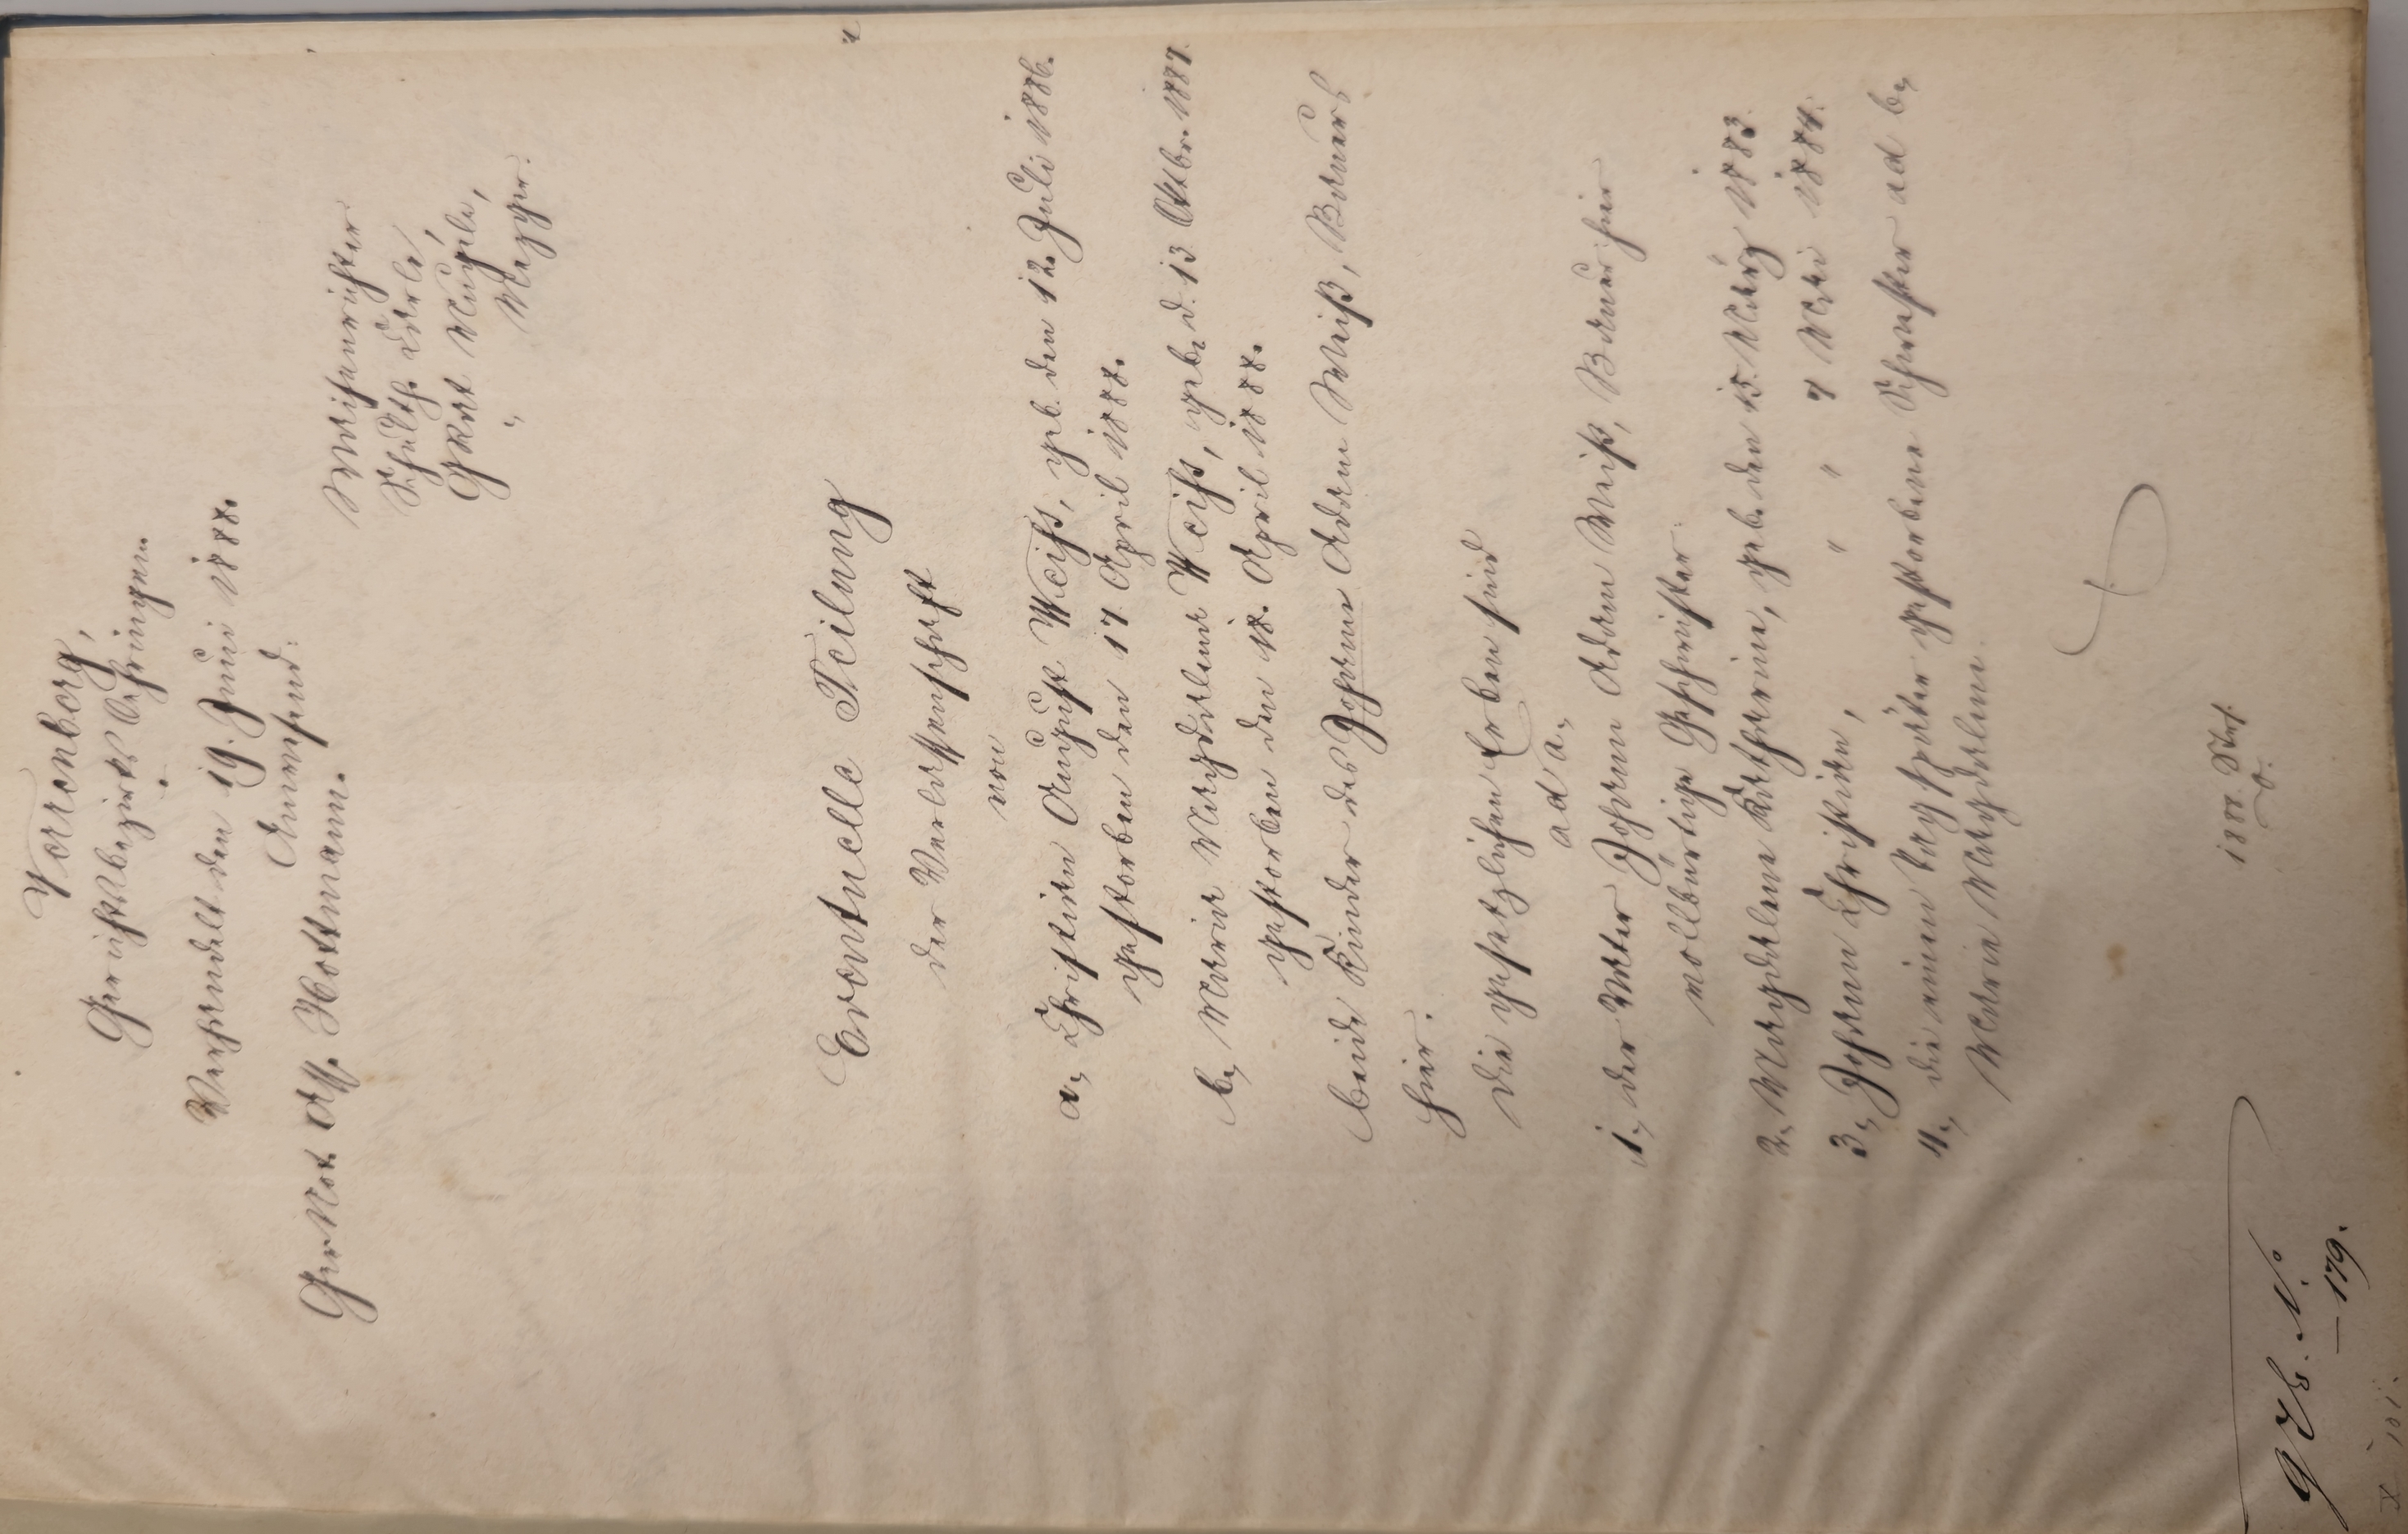 Verrenberg,
Gerichtsbezirks Oehringen.
Verhandelt den 19. Juni 1888.
Anwesend:
Ger. Not. Ass. Hottmann.
Waisenrichter
Schulth. Karle,
GRat
Eventuelle Teilung
der Verlassenschaft
von
a, Christian August Weiß, geb. den 12. Juli 1886.
gestorben den 17. April 1888.
b, Maria Magdalena Weiß, geb. d. 13. Oktbr. 1887.
gestorben den 18. April 1888.
beide Kinder des Johann Adam Weiß, Bauers
hier.
Die gesetzlichen Erben sind
ad a,
1, der Vater Johann Adam Weiß, Bauer hier
vollbürtige Geschwister:
2, Magdalena Katharina, geb. den 15. März 1883.
3, Johann Christian, " " 7 Mai 1884.
4, die einen Tag später gestorbene Schwester ad b,
Maria Magdalena.
1888.
179.